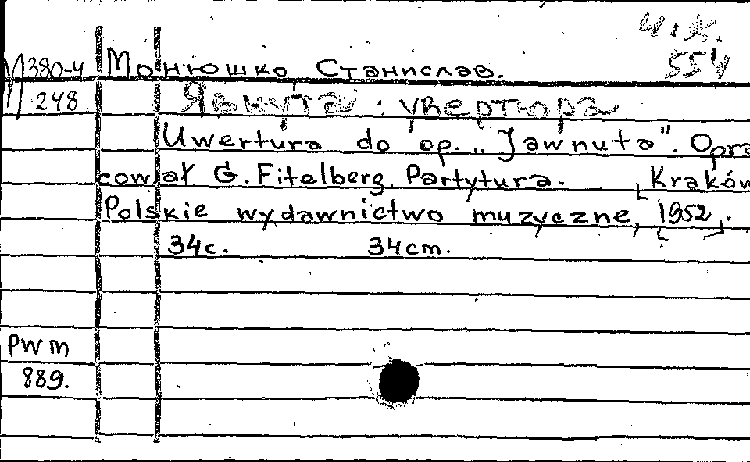 ч.з.
554
М380-4 Монюшко, Станислав.
248 Явнута : увертюра
Uwertura do op. „Jawnuta". Opra
cował G. Fitelberg. Partytura. [Kraków
Polskie wydawnictwo muzyczne, [1952].
34c. 34cm.
PWM
889.